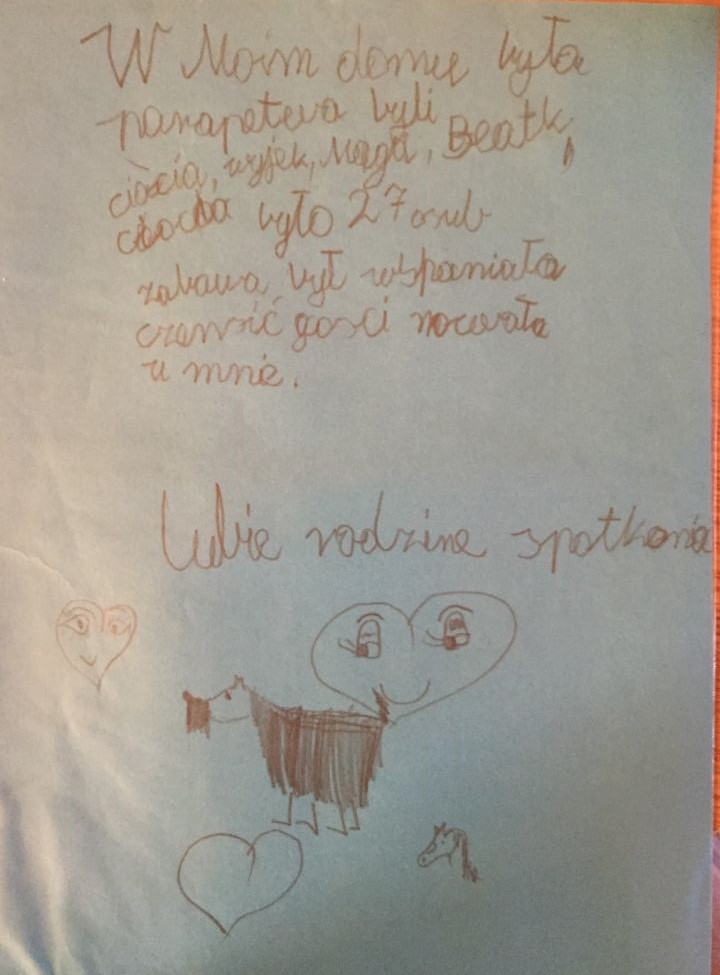 W Moim domu była
parapetuva byli
ciocia, wyjek, Magda, Beatk,
ciocia było 27 osub
zabawa był wspaniała
czensić gosci nocowała
u mnie.
Lubie rodzine spotkania